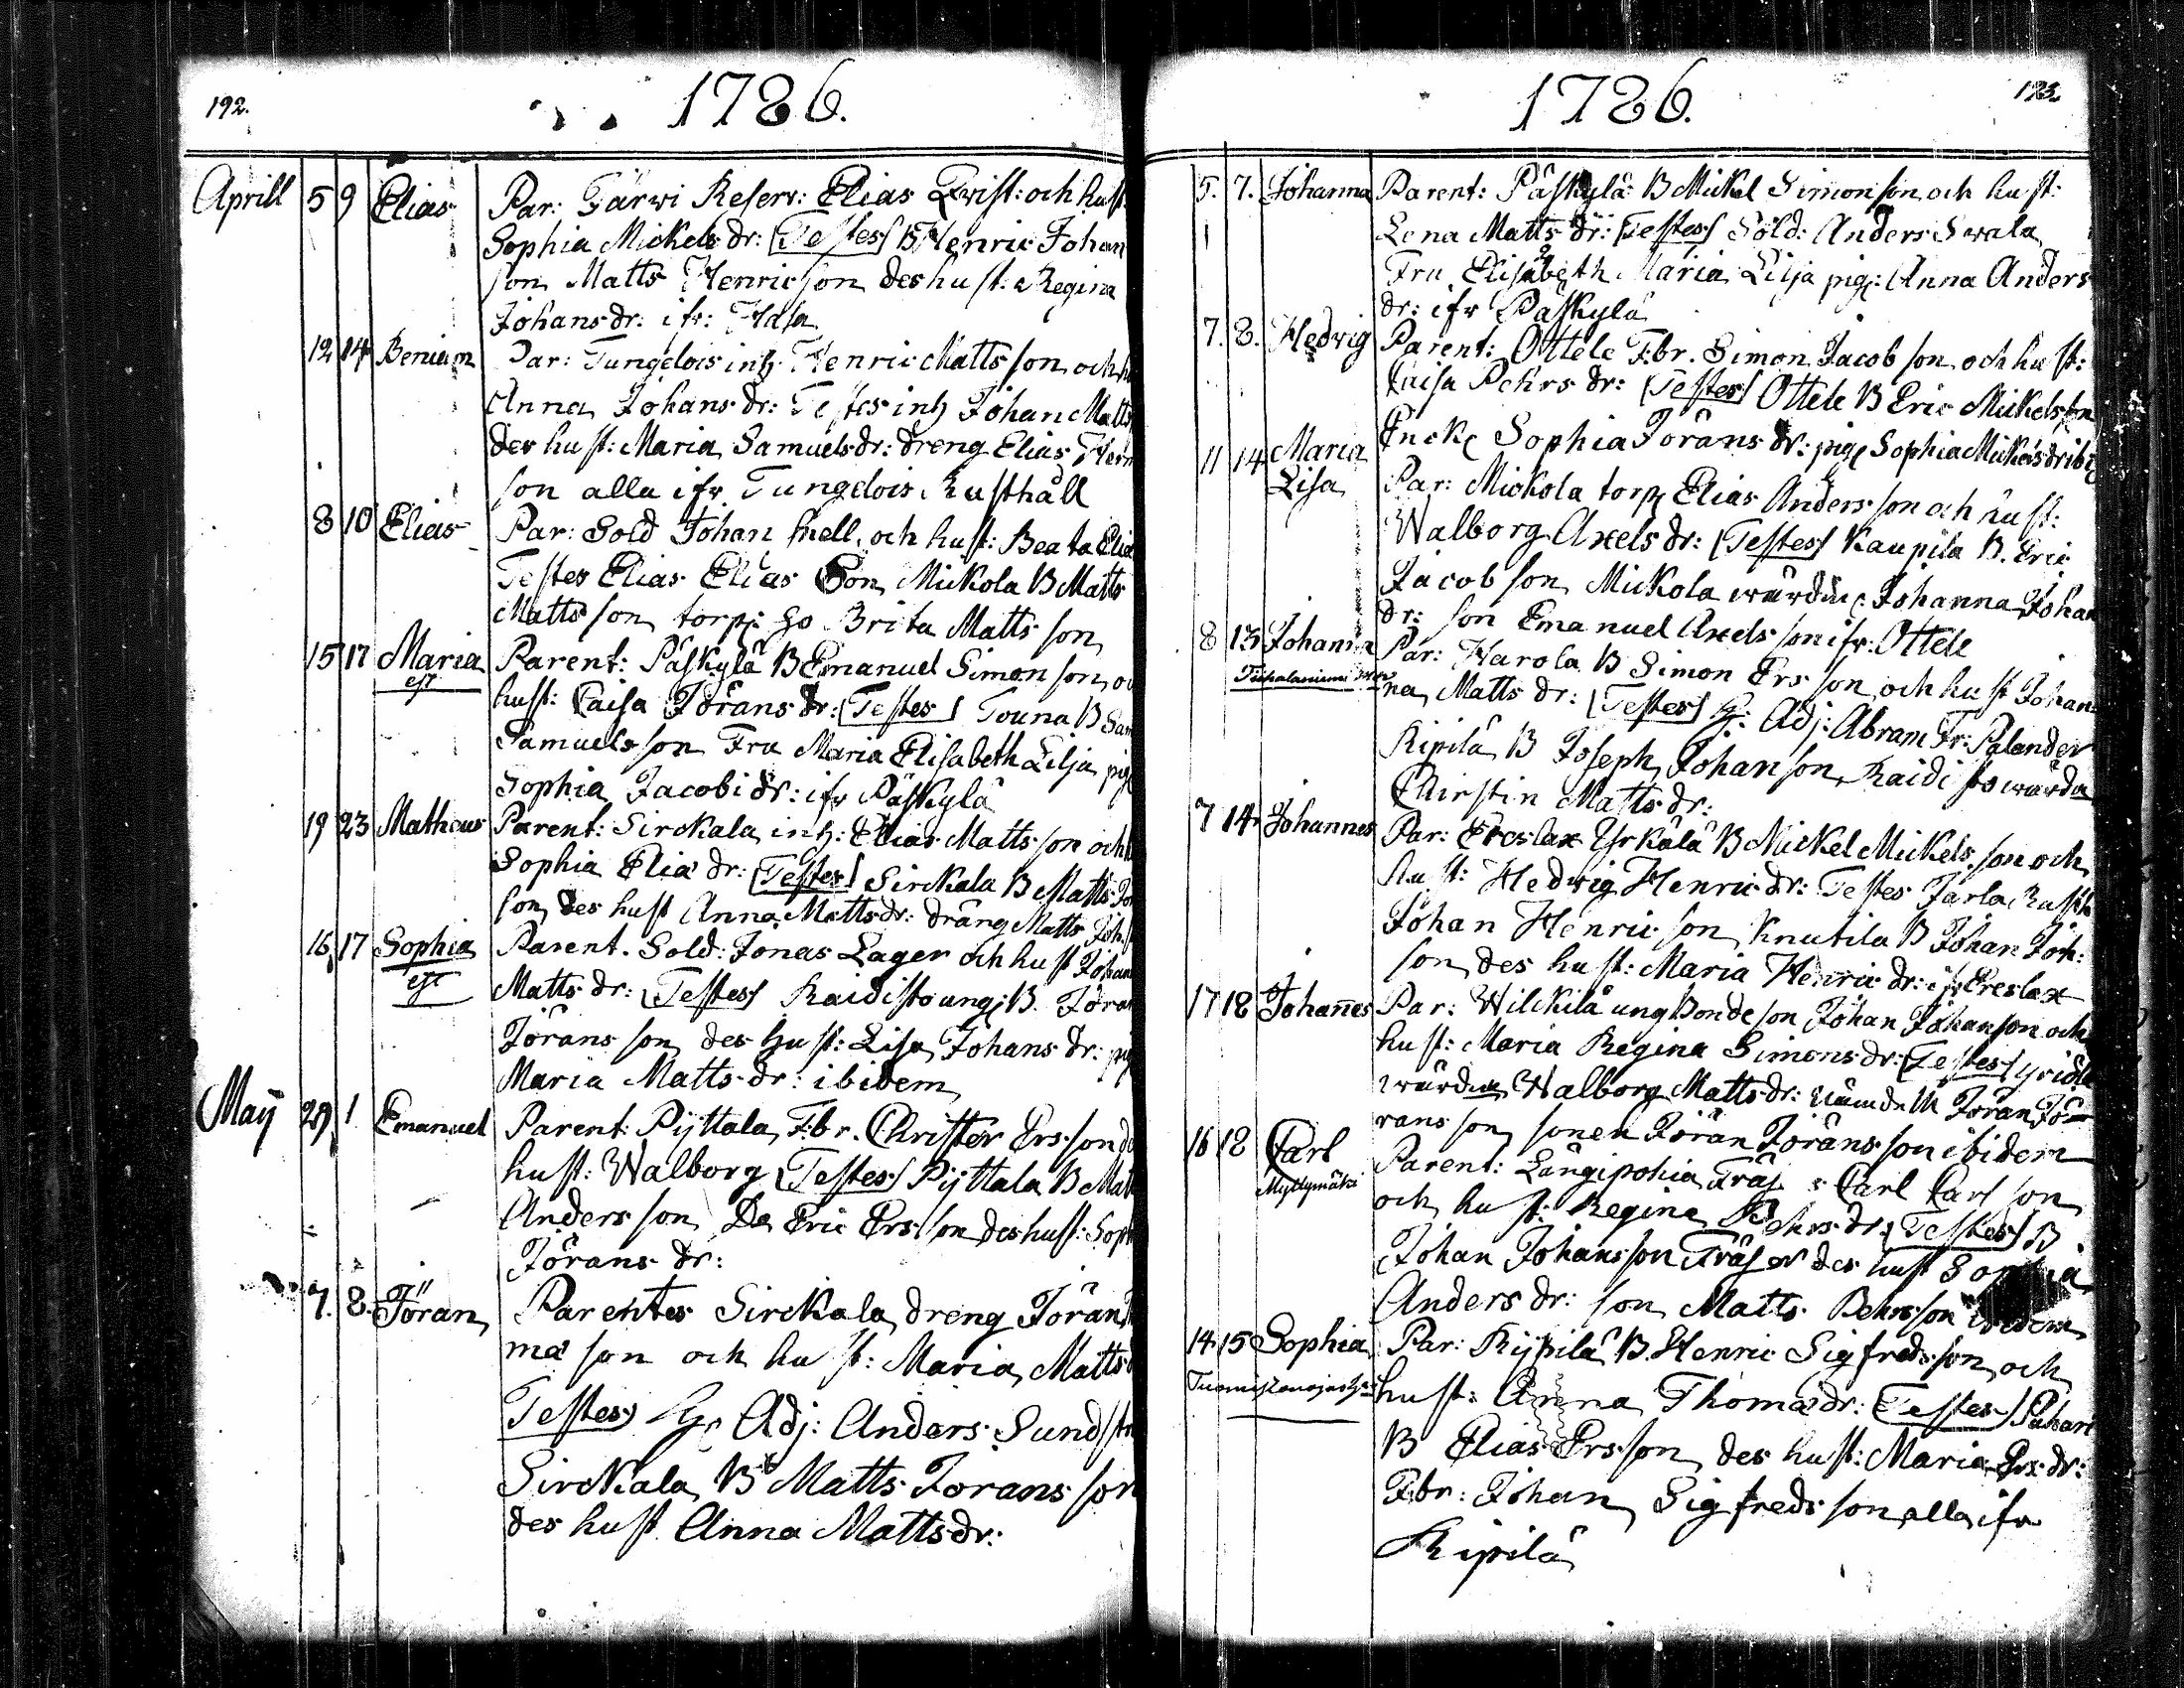 192.
1786.
Aprill 5 9 Elias Par: Järwi Reserv: Elias Qvist: och hust:
Sophia Mickels dr: Testes B Henric Johan
son Matts Henricson des hust: Regina
Johans dr: ifr:
12 14 Beniam Par: Tungelois inh: Henric Matts son och
Anna Johans dr: Testes inh Johan Matts
des hust: Maria Samuels dr: dreng Elias Hen
son alla ifr Tungelois Rusthåll
8 10 Elias Par: Sold Johan Snell och hust: Beata Elia
Testes Elias Elias Son Mickola B Matts
Matts son torp: Brita Matts son
15 17 Maria Parent: Påskylä B Emanuel Simon son
hust: Caisa Jörans dr: Testes Touna B Sam
Samuels son Fru Maria Elisabeth Lilja pig
Sophia Jacobi dr: ifr Påskylä
19 23 Matheus Parent: Sirckala inh: Elias Matts son och
Sophia Eliæ dr: Testes Sirckala B Matts Jör
son des hust Anna Matts dr: dräng Matts Joh
16 17 Sophia Parent. Sold: Jonas Lager och hust Johan
Matts dr: Testes Raidisto ung: B. Jöran
Jörans son des Hust: Lisa Johans dr: pig
Maria Matts dr: ibidem
Maÿ 29 1 Emanuel Parent: Pyttala F:br. Christer Ers son
hust: Walborg Testes Pyttala B Matt
Anders son Eric Ers son des hust: Soph
Jörans dr:
7. 8. Jöran Parentes Sirckala dreng Jöran
mæ son och hust: Maria Matts
Testes Adj: Anders Sundst
Sirckala B Matts Jorans son
des hust Anna Matts dr:
1786.
5. 7. Johanna Parent: Påskylä B Mickel Simon son och hust:
Lena Matts dr: Testes Sold: Anders Swala
Fru Elisabeth Maria Lilja pig: Anna Anders
dr: ifr Påskylä
7. 8. Hedwig Parent: Ottele F:br. Simon Jacob son och hust:
Caisa Pehrs dr: Testes Ottele B Eric Mickelsson
Enck Sophia Jörans dr: pig Sophia Mickels dr ib
11 14 Maria
Lisa Par: Mickola torp Elias Anders son och hust:
Walborg Axels dr: Testes Kaupila B. Eric
Jacob son Mickola wärdin: Johanna Johan
dr: son Emanuel Axels son ifr: Ottele
8 13 Johanna Par: Harola B Simon Ers son och hust Johan
na Matts dr: Testes Adj: Abram Fr: Palander
Ripilä B Joseph Johan son Raidisto wärdin
Chirstin Matts dr:
7 14 Johannes Par: Ereslax Yrkälä B Mickel Mickels son och
hust: Hedwig Henric dr: Testes Jarla Rusth
Johan Henric son Knutila B Johan Joh:
son des hust: Maria Henric dr: ifr Ereslax
17 18 Johanes Par: Wilckilä ung Bonde son Johan Johanson och
hust: Maria Regina Simons dr: Testes
wärdin Walborg Matts dr: Nämde M Jöran Jö
rans son sonen Jöran Jörans son ibidem
16 18 Carl
Myllymäki Parent: Längipohia Träs Carl Carl son
och hust: Regina Pehrs dr: Testes B
Johan Johans son Träs des hust Sophia
Anders dr: son Matts Pehrs son ibidem
14 15 Sophia Par: Rypilä B. Henric Sigfreds son och
hust: Anna Thomæ dr: Testes
B Elias Ers son des hust: Maria Ers dr:
F:br: Johan Sigfreds son alla ifr
Ripilä